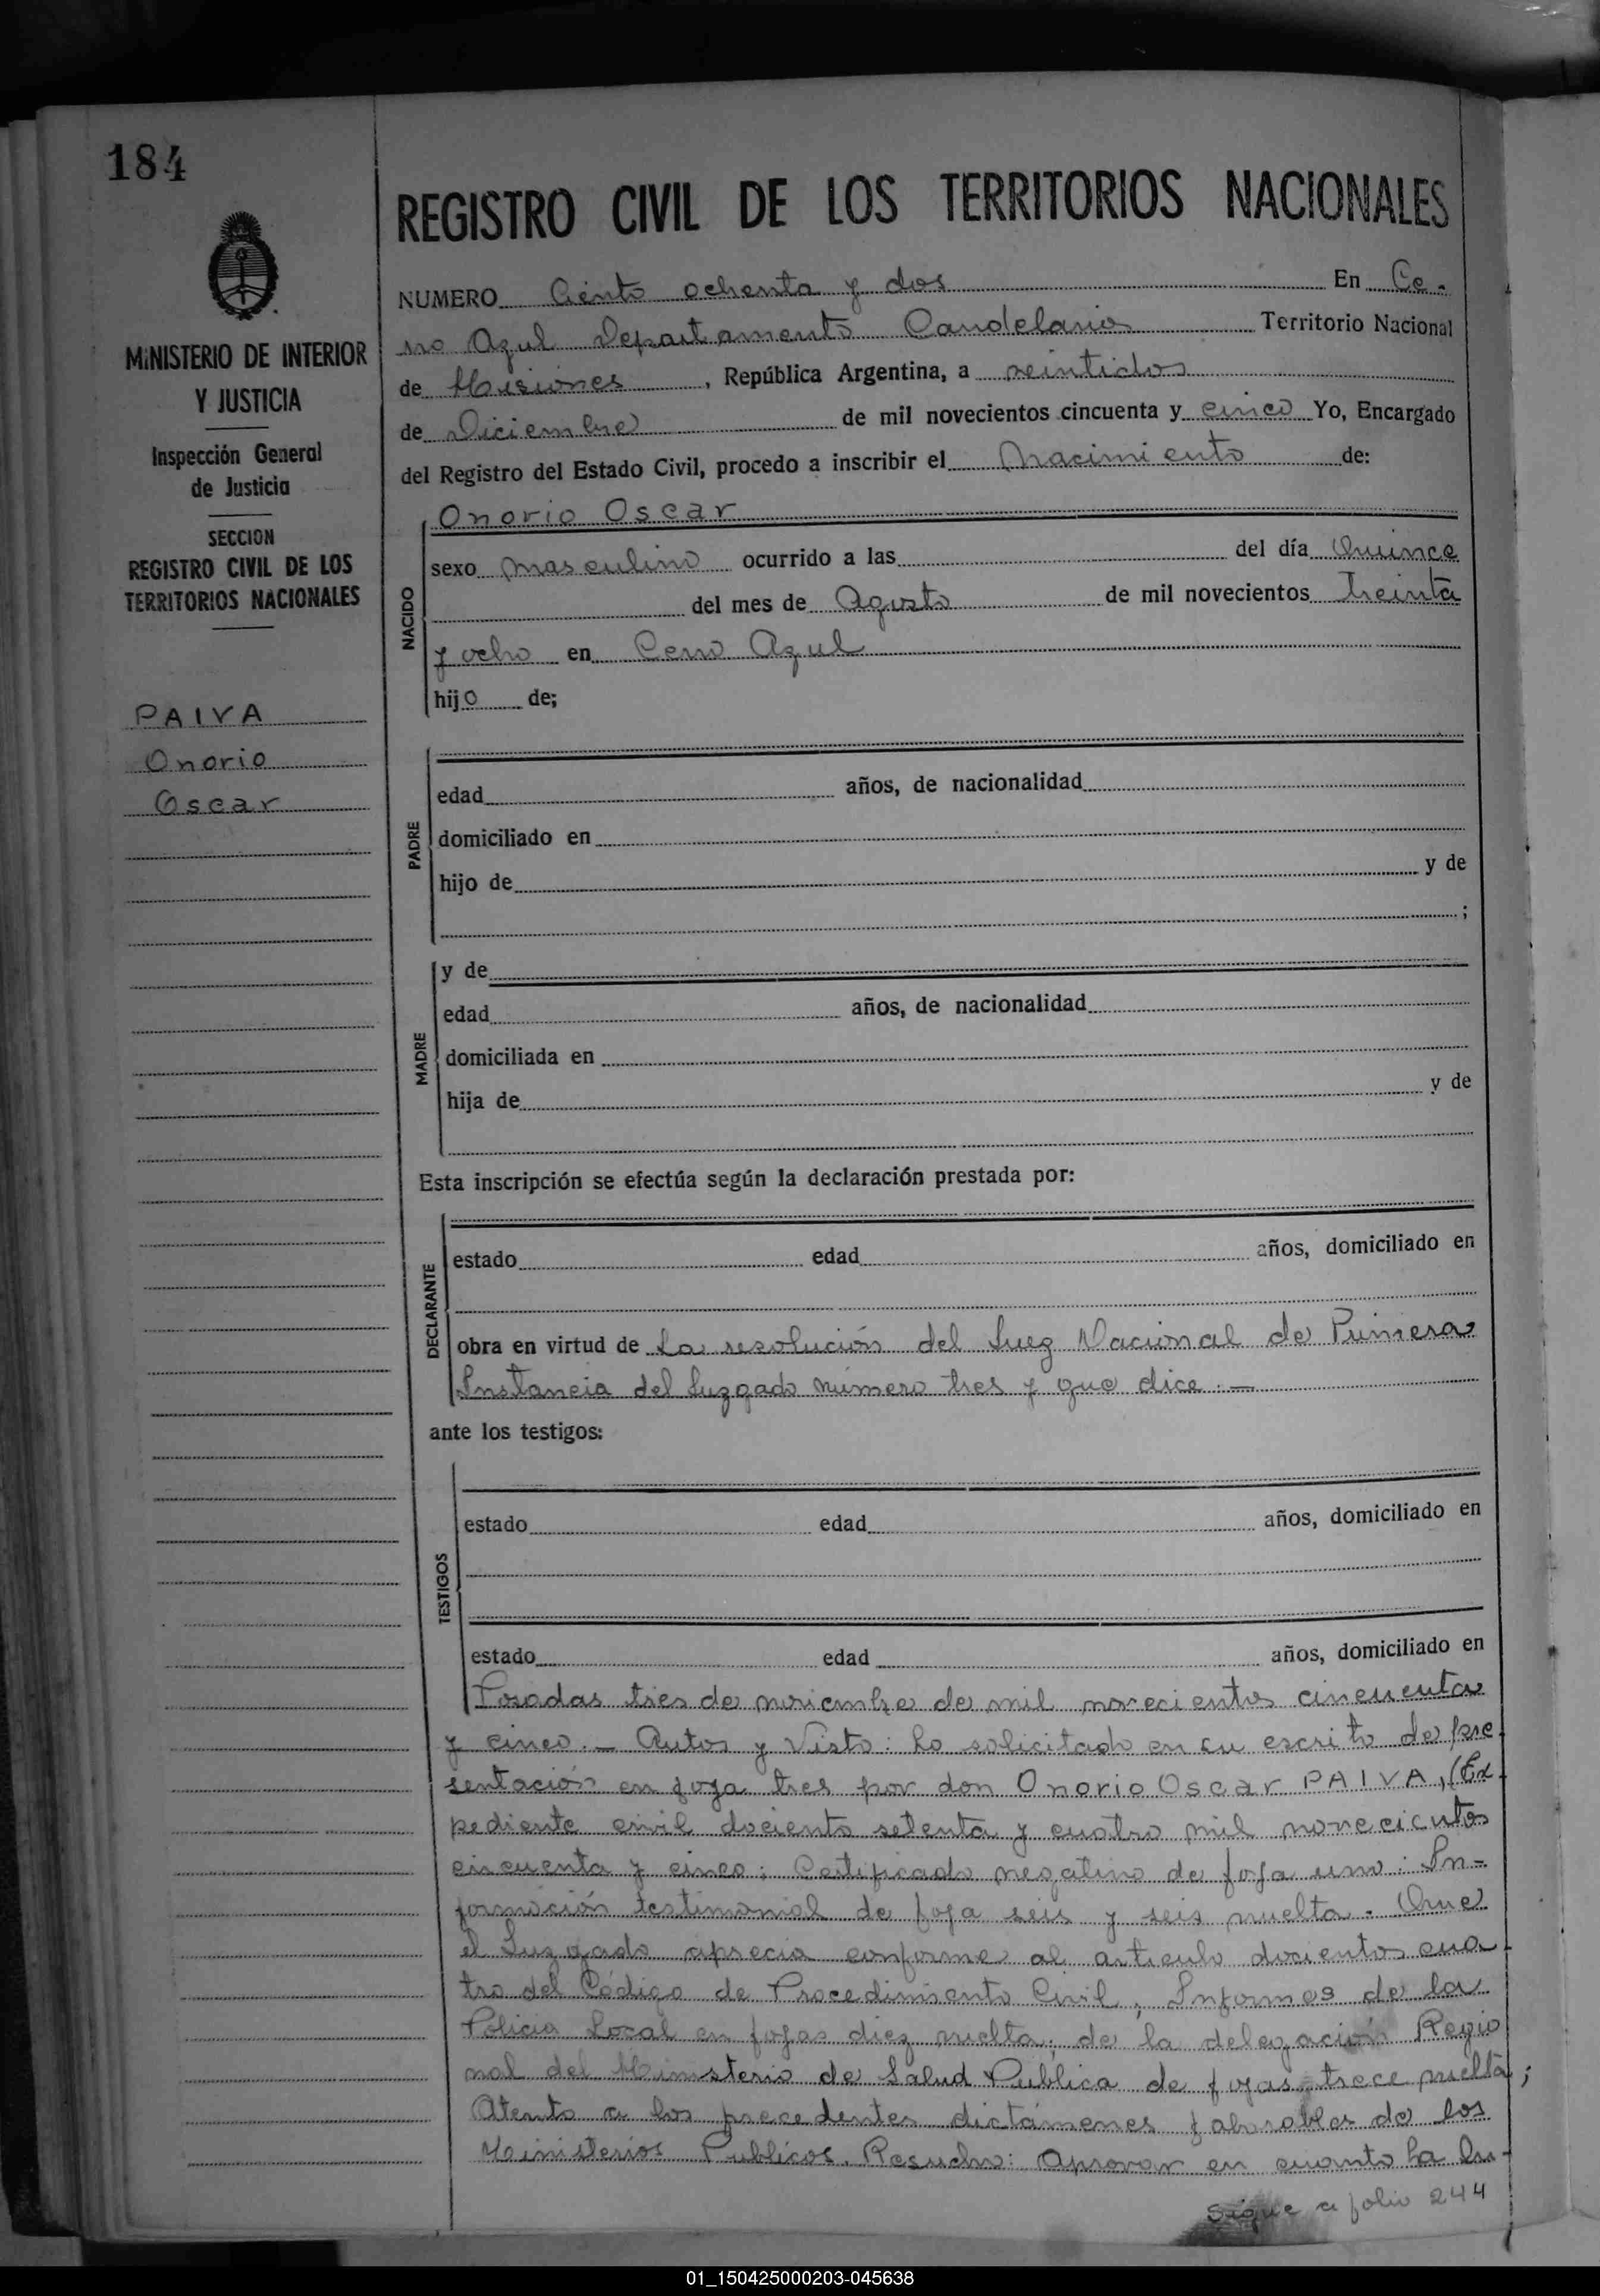 184
REGISTRO CIVIL DE LOS TERRITORIOS NACIONALES
MINISTERIO DE INTERIOR
Y JUSTICIA
Inspección General
de Justicia
SECCION
REGISTRO CIVIL DE LOS
TERRITORIOS NACIONALES
PAIVA
Onorio
Oscar
NUMERO Ciento ochenta y dos En Ce-
rro Azul Departamento Candelaria Territorio Nacional
de Misiones, República Argentina, a veintidos
de Diciembre de mil novecientos cincuenta y cinco Yo, Encargado
del Registro del Estado Civil, procedo a inscribir el Nacimiento de:
NACIDO
Onorio Oscar
sexo masculino ocurrido a las del día Quince
del mes de Agosto de mil novecientos treinta
y ocho en Cerro Azul
hijo de;
PADRE
edad años, de nacionalidad
domiciliado en
hijo de y de
;
MADRE
y de
edad años, de nacionalidad
domiciliada en
hija de y de
Esta inscripción se efectúa según la declaración prestada por:
DECLARANTE
estado edad años, domiciliado en
obra en virtud de La resolución del Juez Nacional de Primera
Instancia del Juzgado número tres y que dice. —
ante los testigos:
TESTIGOS
estado edad años, domiciliado en
estado edad años, domiciliado en
Posadas tres de noviembre de mil novecientos cincuenta
y cinco. — Autos y Visto: Lo solicitado en su escrito de pre-
sentación en foja tres por don Onorio Oscar PAIVA, (Ex-
pediente civil dociento setenta y cuatro mil novecientos
cincuenta y cinco; Certificado negativo de foja uno: In-
formación testimonial de foja seis y seis vuelta. Que
el Juzgado aprecia conforme al articulo docientos cua-
tro del Código de Procedimiento Civil; Informes de la
Policia Local en fojas diez vuelta; de la delegación Regio
nal del Ministerio de Salud Publica de fojas trece vuelta;
Atento a los precedentes dictámenes faborables de los
Ministerios Publicos. Resuelvo: Aprovar en cuanto ha lu-
Sigue a folio 244
01_150425000203-045638